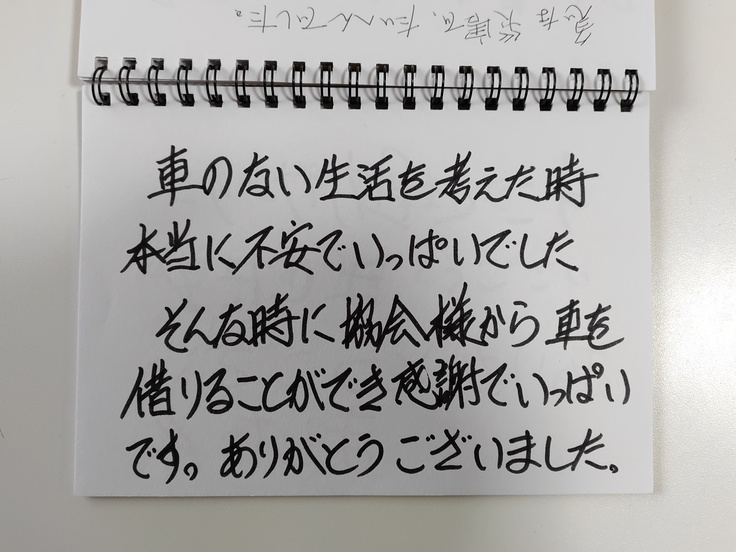 急な災害で、たいへんでした。
車のない生活を考えた時
本当に不安でいっぱいでした
そんな時に協会様から車を
借りることができ感謝でいっぱい
です。ありがとうございました。